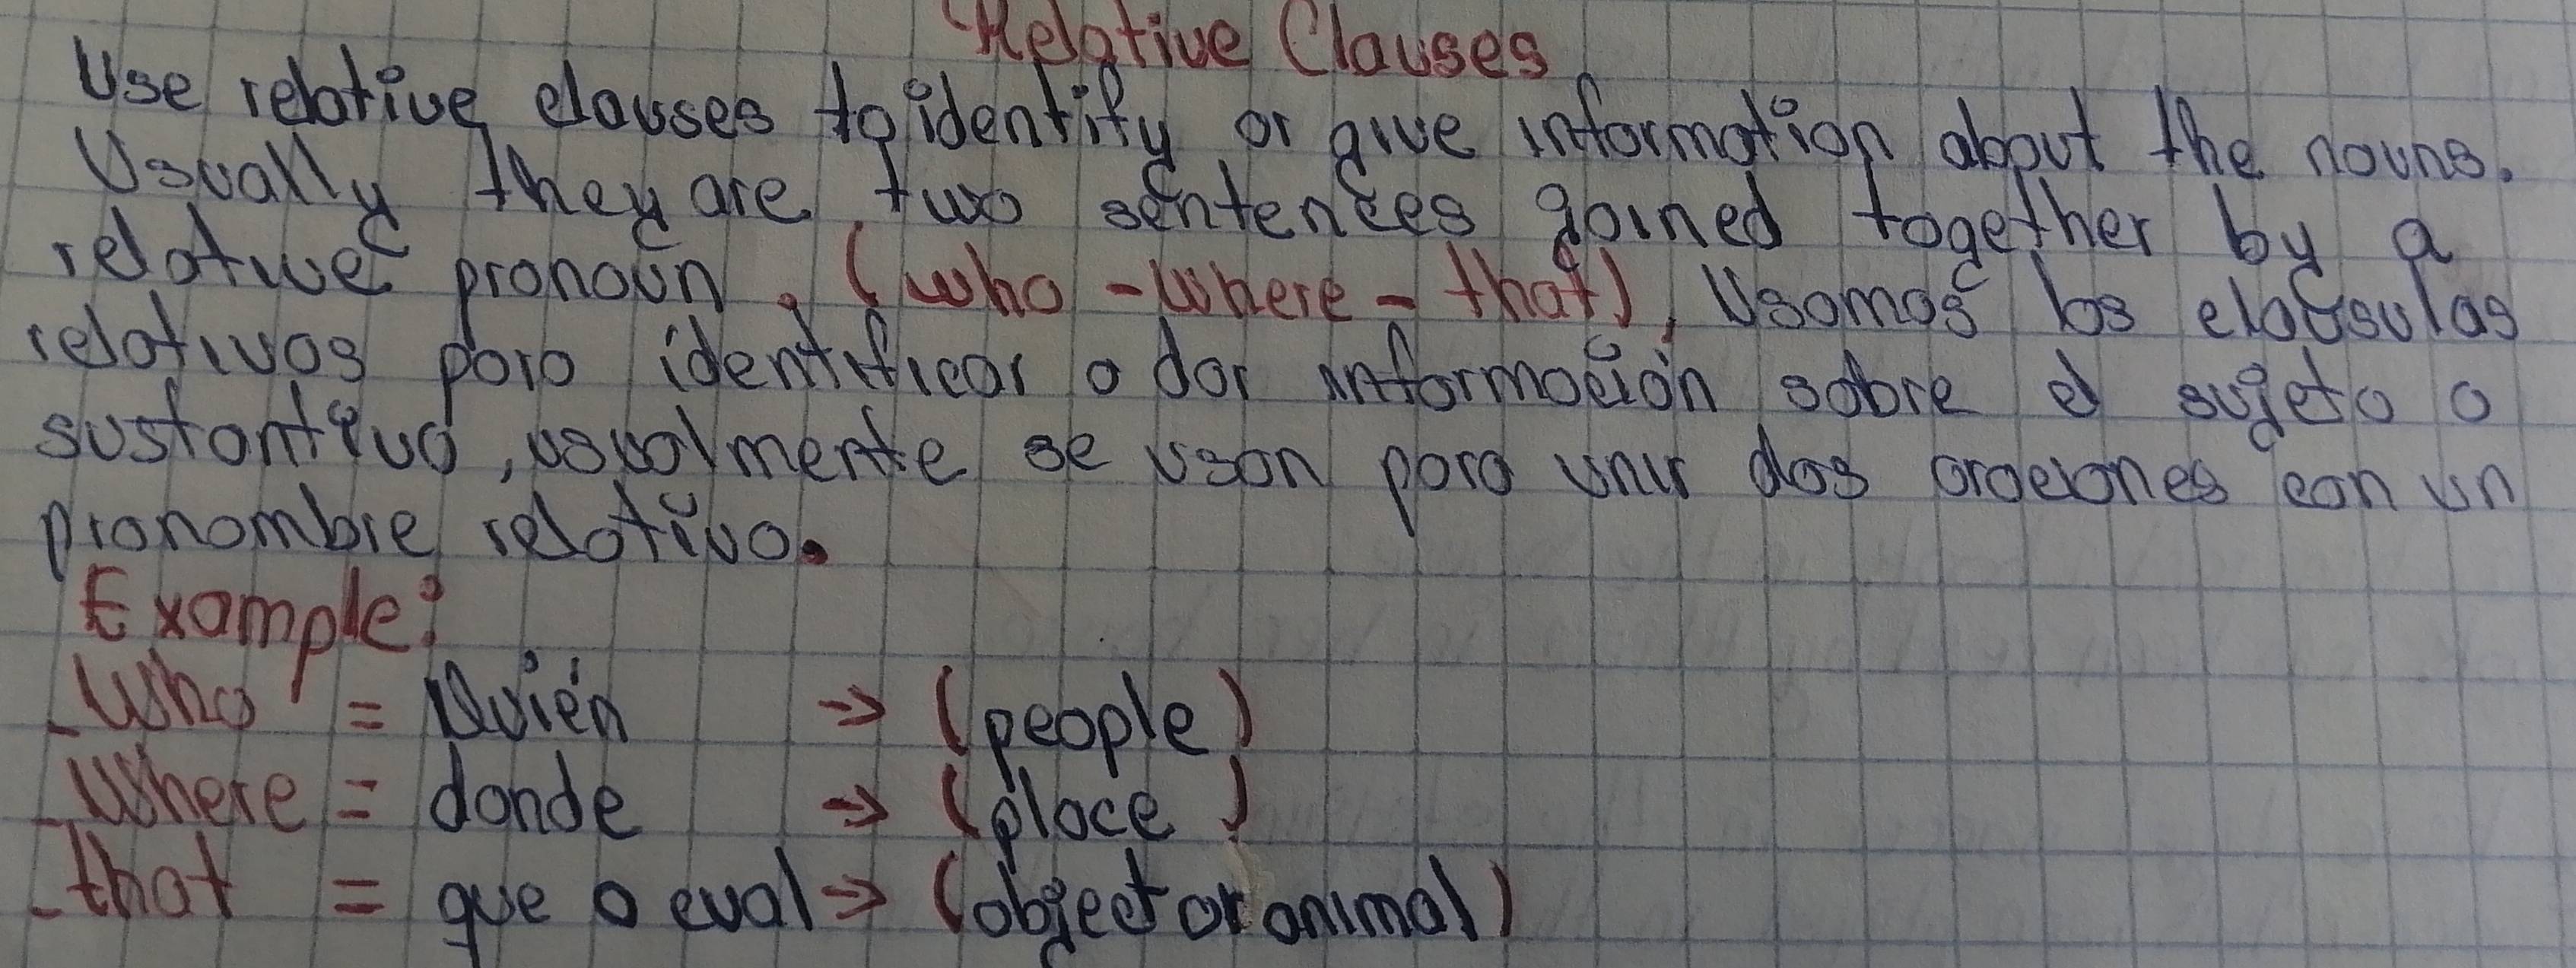 Relative Clauses
Use relative clauses to identify or give information about the nouns.
Usually they are two sentences joined together by a
relative pronoun. (who - Where - that), Usamos las claúsulas
relativas para identificar o dar información sobre el sujeto o
sustantivo, usualmente se usan para unir dos oraciones con un
pronombre relativo.
Example:
- Who = Quién → (people)
- Where = donde → (place)
- that = que o cual → (object or animal)